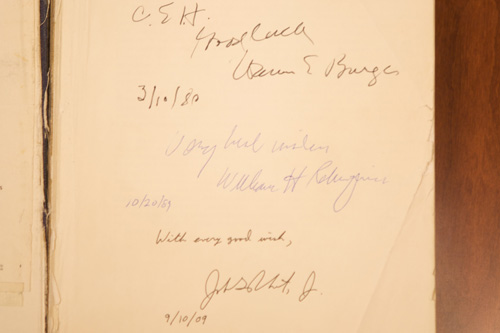 C. E. H.
Good luck
Warren E Burger
3/10/80
Very best wishes
William H Rehnquist
10/20/89
With every good wish,
John G. Roberts, Jr.
9/10/09